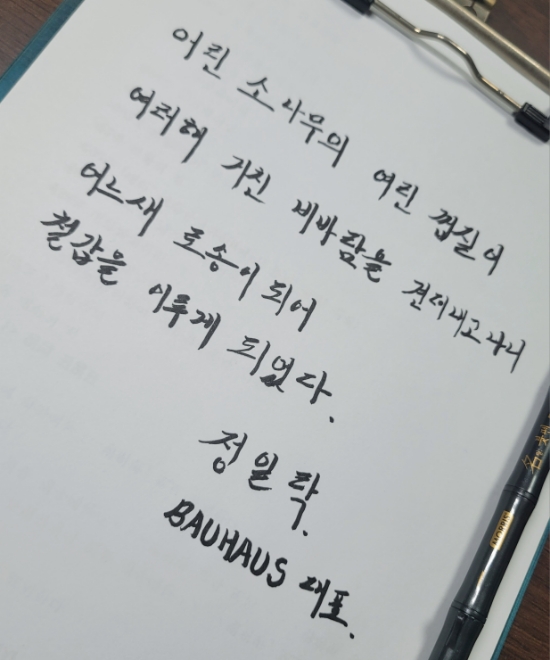 어린 소나무의 여린 껍질이
여러해 거친 비바람을 견뎌내고나니
어느새 로송이 되어
철갑을 이루게 되었다.
정일탁.
BAUHAUS 대표.